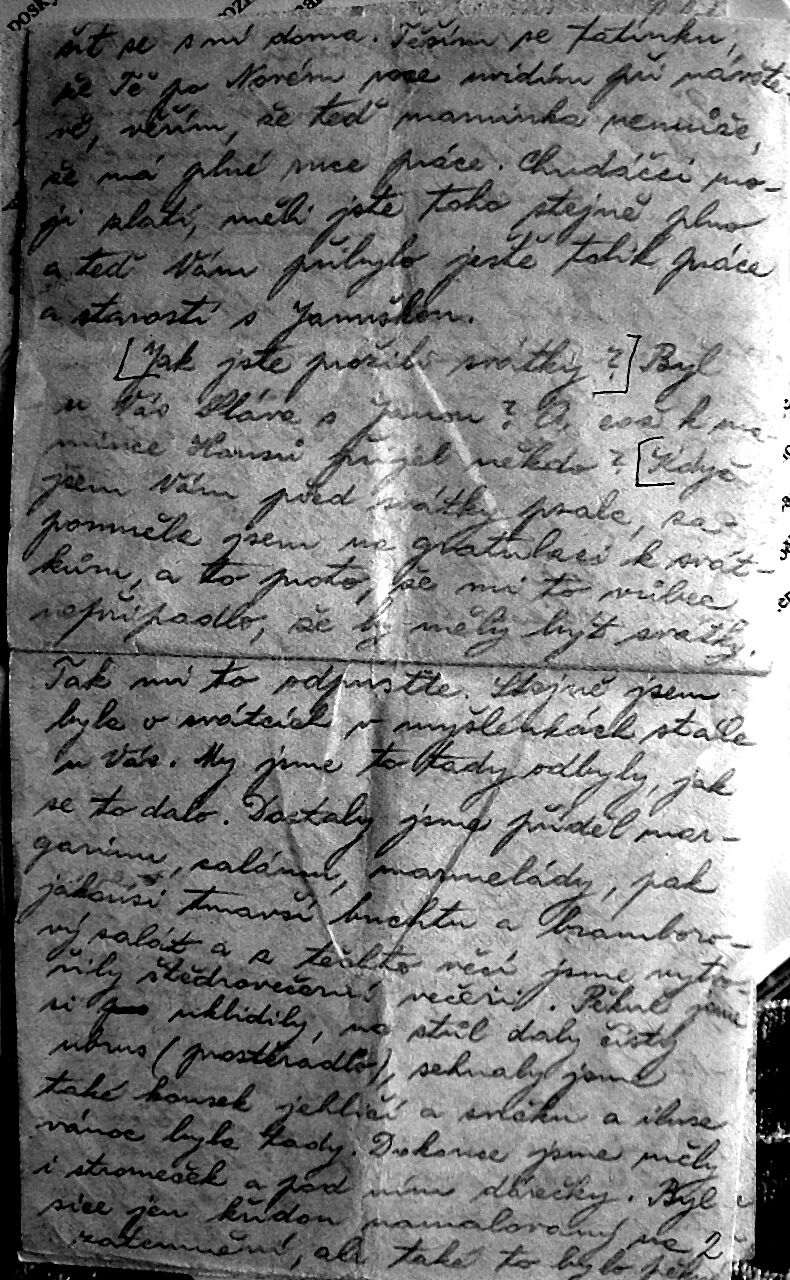 šit se s ní doma. Těším se tatínku,
že Tě po Novém roce uvidím při návště-
vě, věřím, že teď maminka nemůže,
že má plné ruce práce. Chudáčci mo-
ji zlatí, měli jste toho stejně plno
a teď Vám přibylo ještě tolik práce
a starostí s Januškou.
[Jak jste prožili svátky?] Byl
u Vás Sláva s Janou? A což k ma-
mince Hansi přijel někdo? [Když
jsem Vám před svátky psala, za-
pomněla jsem na gratulaci k svát-
kům, a to proto, že mi to vůbec
nepřipadlo, že by měly být svátky.
Tak mi to odpusťte. Stejně jsem
byla o svátcích v myšlenkách stále
u Vás. My jsme to tady odbyly, jak
se to dalo. Dostaly jsme příděl mar-
garinu, salámu, marmelády, pak
jakousi tmavší buchtu a bramboro-
vý salát a z těchto věcí jsme vytvo-
řily štědrovečerní večeři. Pěkně jsme
si uklidily, na stůl daly čistý
ubrus (prostěradlo), sehnaly jsme
také kousek jehličí a snišku a iluse
vánoc byla tady. Dokonce jsme měly
i stromeček a pod ním dárečky. Byl
sice jen křídou namalovaný na
zatemnění, ale také to bylo